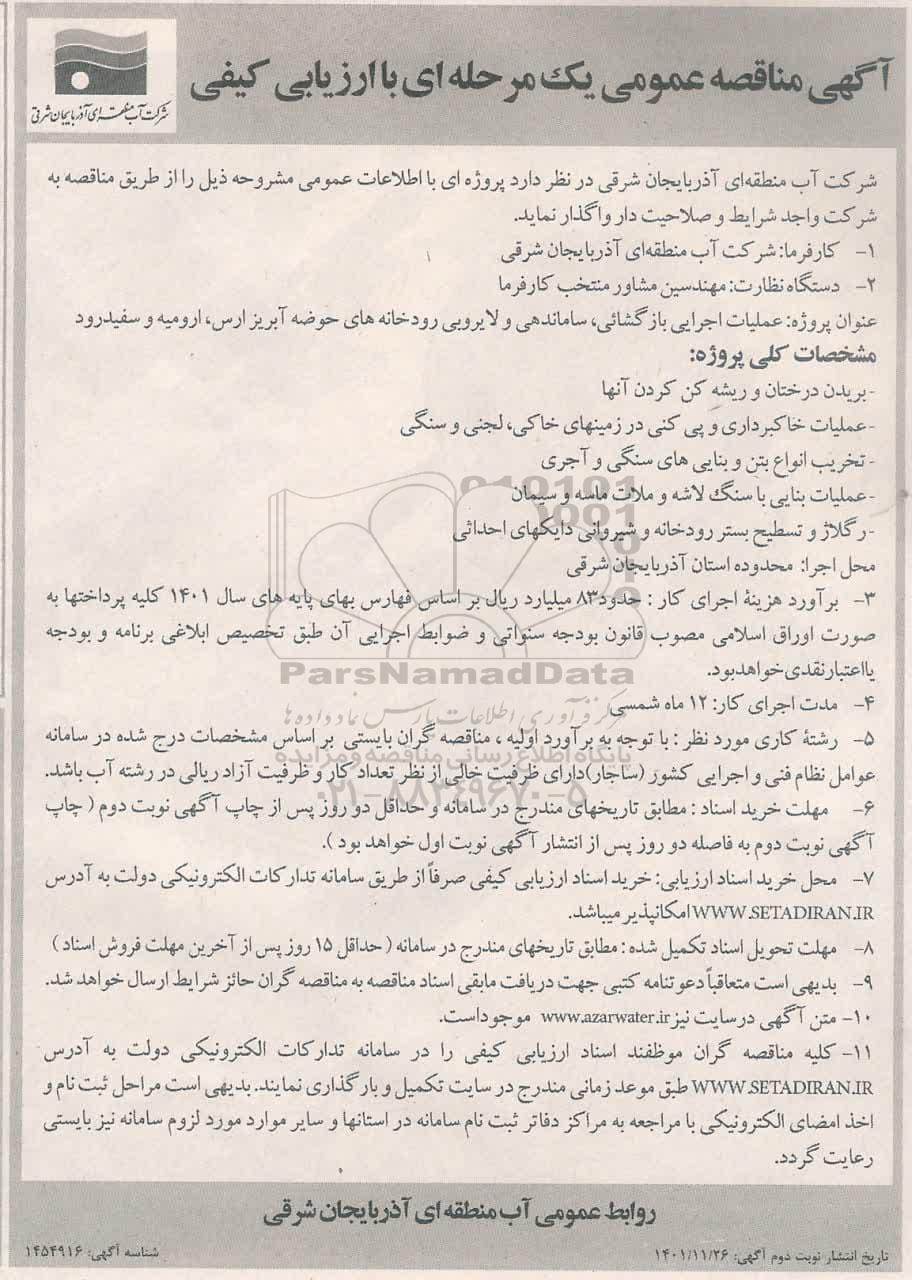 آگهی مناقصه عمومی یک مرحله ای با ارزیابی کیفی
شرکت آب منطقه ای آذربایجان شرقی
شرکت آب منطقه‌ای آذربایجان شرقی در نظر دارد پروژه ای با اطلاعات عمومی مشروحه ذیل را از طریق مناقصه به
شرکت واجد شرایط و صلاحیت دار واگذار نماید.
۱- کارفرما: شرکت آب منطقه‌ای آذربایجان شرقی
۲- دستگاه نظارت: مهندسین مشاور منتخب کارفرما
عنوان پروژه: عملیات اجرایی بازگشائی، ساماندهی و لایروبی رودخانه های حوضه آبریز ارس، ارومیه و سفیدرود
مشخصات کلی پروژه:
-بریدن درختان و ریشه کن کردن آنها
-عملیات خاکبرداری و پی کنی در زمینهای خاکی، لجنی و سنگی
-تخریب انواع بتن و بنایی های سنگی و آجری
-عملیات بنایی با سنگ لاشه و ملات ماسه و سیمان
-رگلاژ و تسطیح بستر رودخانه و شیروانی دایکهای احداثی
محل اجرا: محدوده استان آذربایجان شرقی
۳- برآورد هزینهٔ اجرای کار : حدود۸۳ میلیارد ریال بر اساس فهارس بهای پایه های سال ۱۴۰۱ کلیه پرداختها به
صورت اوراق اسلامی مصوب قانون بودجه سنواتی و ضوابط اجرایی آن طبق تخصیص ابلاغی برنامه و بودجه
یااعتبارنقدی‌خواهدبود.
۴- مدت اجرای کار: ۱۲ ماه شمسی
۵- رشتهٔ کاری مورد نظر : با توجه به برآورد اولیه ، مناقصه گران بایستی بر اساس مشخصات درج شده در سامانه
عوامل نظام فنی و اجرایی کشور (ساجار)دارای ظرفیت خالی از نظر تعداد کار و ظرفیت آزاد ریالی در رشته آب باشد.
۶- مهلت خرید اسناد : مطابق تاریخهای مندرج در سامانه و حداقل دو روز پس از چاپ آگهی نوبت دوم ( چاپ
آگهی نوبت دوم به فاصله دو روز پس از انتشار آگهی نوبت اول خواهد بود ).
۷- محل خرید اسناد ارزیابی: خرید اسناد ارزیابی کیفی صرفاً از طریق سامانه تدارکات الکترونیکی دولت به آدرس
WWW.SETADIRAN.IR امکانپذیر میباشد.
۸- مهلت تحویل اسناد تکمیل شده : مطابق تاریخهای مندرج در سامانه ( حداقل ۱۵ روز پس از آخرین مهلت فروش اسناد )
۹- بدیهی است متعاقباً دعوتنامه کتبی جهت دریافت مابقی اسناد مناقصه به مناقصه گران حائز شرایط ارسال خواهد شد.
۱۰- متن آگهی در سایت نیز www.azarwater.ir موجوداست.
۱۱- کلیه مناقصه گران موظفند اسناد ارزیابی کیفی را در سامانه تدارکات الکترونیکی دولت به آدرس
WWW.SETADIRAN.IR طبق موعد زمانی مندرج در سایت تکمیل و بارگذاری نمایند. بدیهی است مراحل ثبت نام و
اخذ امضای الکترونیکی با مراجعه به مراکز دفاتر ثبت نام سامانه در استانها و سایر موارد مورد لزوم سامانه نیز بایستی
رعایت گردد.
روابط عمومی آب منطقه ای آذربایجان شرقی
تاریخ انتشار نوبت دوم آگهی: ۱۴۰۱/۱۱/۲۶
شناسه آگهی: ۱۴۵۴۹۱۶
ParsNamadData
مرکز فرآوری اطلاعات پارس نماد داده ها
پایگاه اطلاع رسانی مناقصه و مزایده
۰۲۱-۸۸۳۴۹۶۷۰-۵